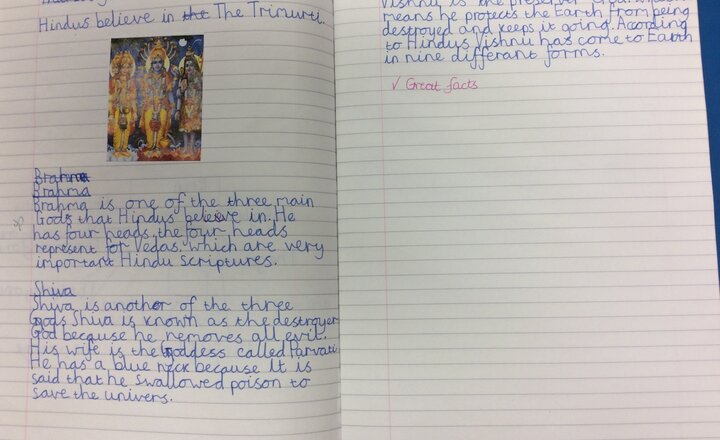 Hindus believe in the The Trimurti.
Brahma
Brahma
Brahma is one of the three main
Gods that Hindus beleive in. He
has four heads, the four heads
represent for Vedas. Which are very
important Hindu scriptures.
Shiva
Shiva is another of the three
Gods Shiva is known as the destroyer
God because he removes all evil.
His wife is the goddess called Parvati
He has a blue neck because it is
said that he swallowed poison to
save the univers.
Vishnu is the preserver
means he protects the Earth from being
destroyed and keeps it going. Acording
to Hindus Vishnu has come to Earth
in nine differant forms.
✓ Great facts